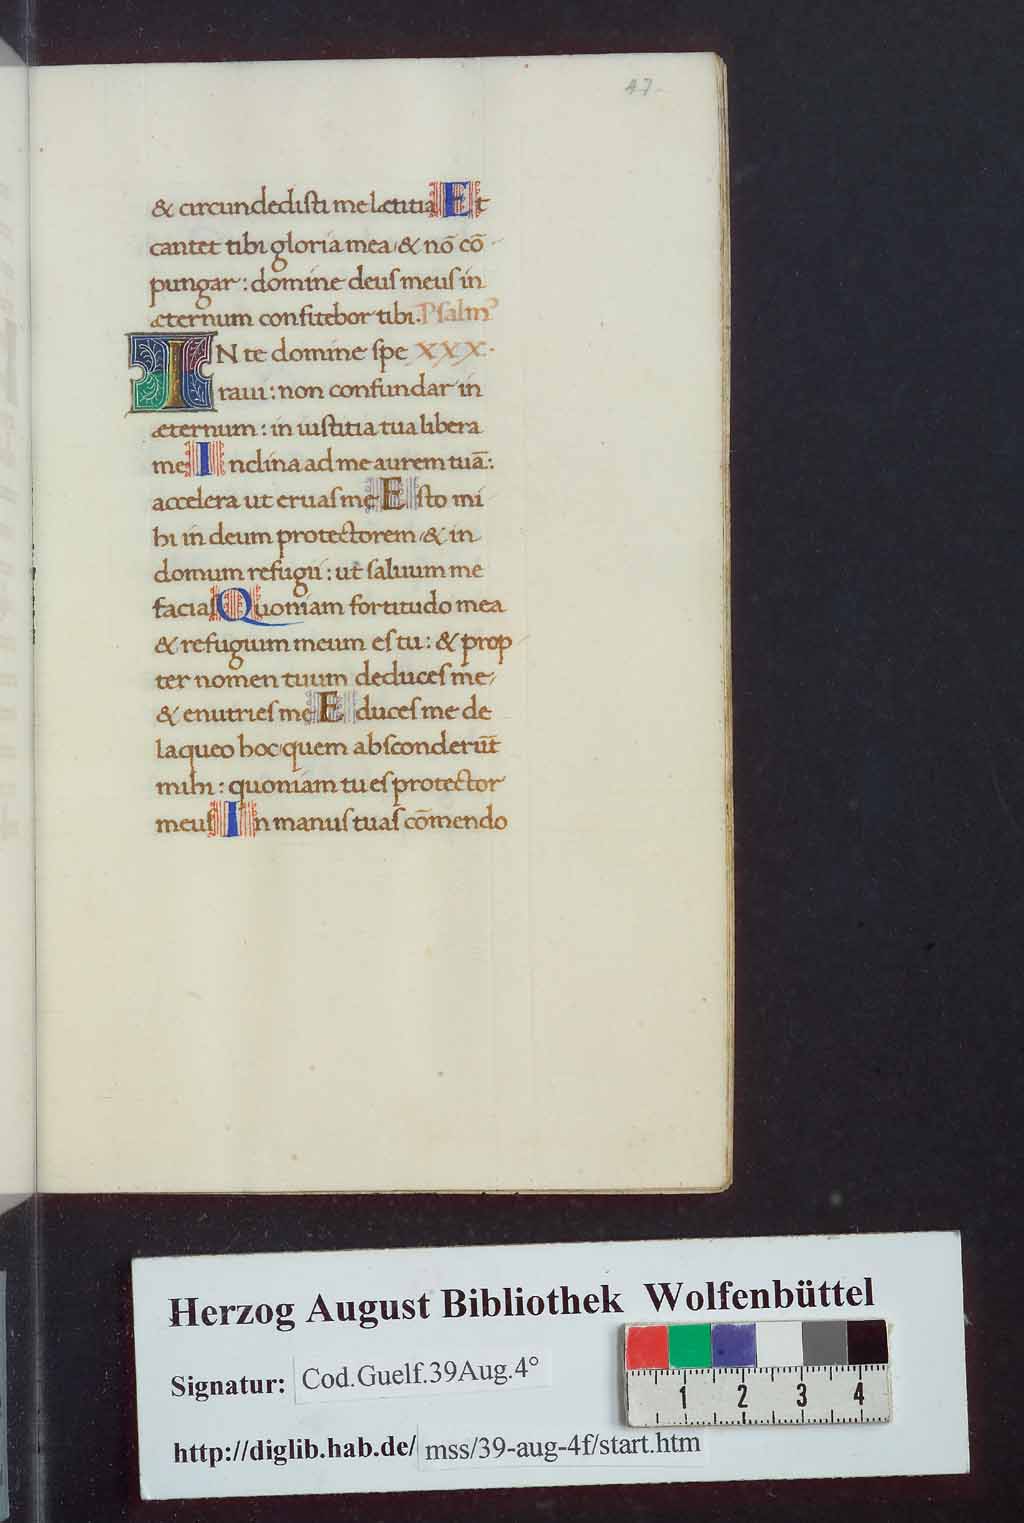 47.
& circundedisti me lætitia Et
cantet tibi gloria mea & nō cō
pungar: domine deus meus in
æternum confitebor tibi. Psalmꝰ
IN te domine spe XXX.
raui: non confundar in
æternum: in iustitia tua libera
me Inclina ad me aurem tuā:
accelera ut eruas me Esto mi
hi in deum protectorem & in
domum refugii: ut saluum me
facias Quoniam fortitudo mea
& refugium meum es tu: & prop
ter nomen tuum deduces me
& enutries me Educes me de
laqueo hoc quem absconderūt
mihi: quoniam tu es protector
meus In manus tuas cōmendo
Herzog August Bibliothek Wolfenbüttel
Signatur: Cod.Guelf.39Aug.4°
1 2 3 4
http://diglib.hab.de/ mss/39-aug-4f/start.htm